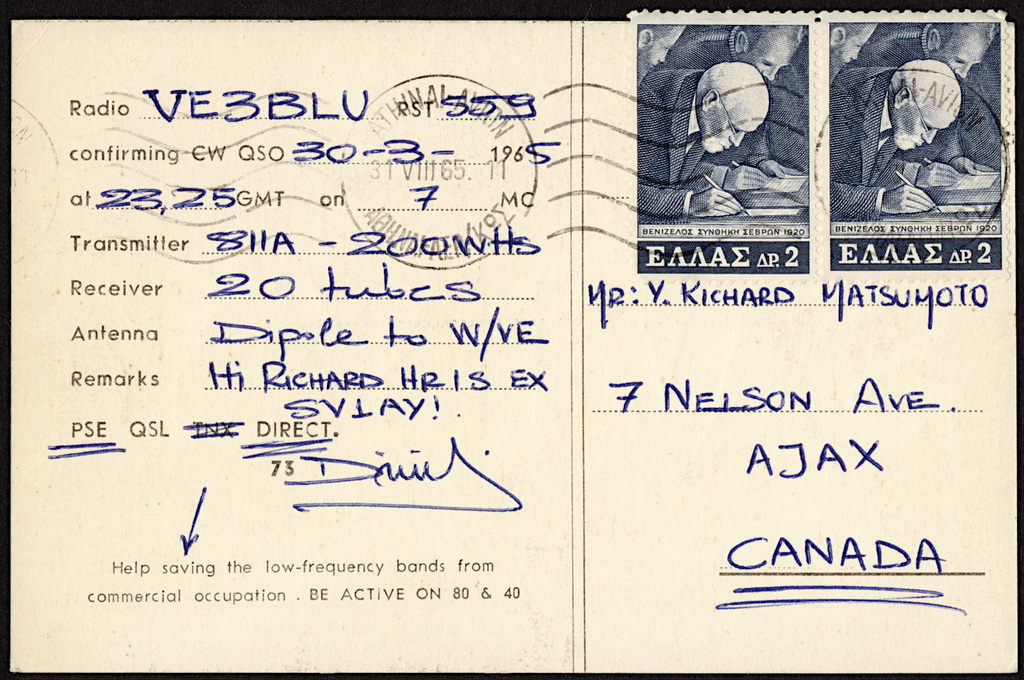 Radio VE3BLU RST 559
confirming CW QSO 30-3- 1965
at 23,25 GMT on 7 MC
Transmitter 811A - 200WHs
Receiver 20 tubes
Antenna Dipole to W/VE
Remarks Hi RICHARD HR IS EX
SV1AY!
PSE QSL TNX DIRECT.
73
Help saving the low-frequency bands from
commercial occupation . BE ACTIVE ON 80 & 40
ATHINAI-AVION
31 VIII 65. 11
ΒΕΝΙΖΕΛΟΣ ΣΥΝΘΗΚΗ ΣΕΒΡΩΝ 1920
ΕΛΛΑΣ ΔΡ. 2
ΒΕΝΙΖΕΛΟΣ ΣΥΝΘΗΚΗ ΣΕΒΡΩΝ 1920
ΕΛΛΑΣ ΔΡ. 2
MR: Y. RICHARD MATSUMOTO
7 NELSON AVE.
AJAX
CANADA